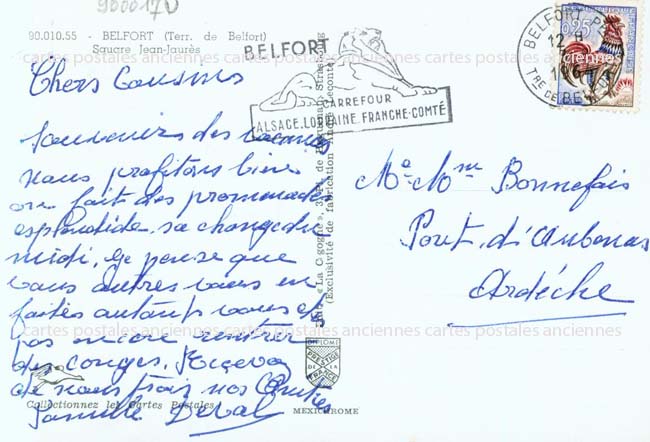 90.010.55 - BELFORT (Terr. de Belfort)
Square Jean-Jaurès
BELFORT
CARREFOUR
ALSACE. LORRAINE. FRANCHE-COMTÉ
BELFORT
12 H
TRE DE BELFORT
0,25
Chers Cousins
Souvenirs des vacances
nous profitons bien
on fait des promenades
esplendide, sa change du
midi, Je pense que
vous autres vous en
faites autant vous et
pas encore rentrer
des conges, Recevez
de nous trois nos Amitiés
Famille Deval
Me Mme Bonnefais
Pont d'Aubenas
Ardéche
Edit. « La Cigogne »,
(Exclusivité de fabrication André Leconte)
cartes postales anciennes cartes postales anciennes cartes postales anciennes
cartes postales anciennes cartes postales anciennes cartes postales anciennes
DIPLOME
PRESTIGE
DE LA
FRANCE
Collectionnez les Cartes Postales
MEXICHROME